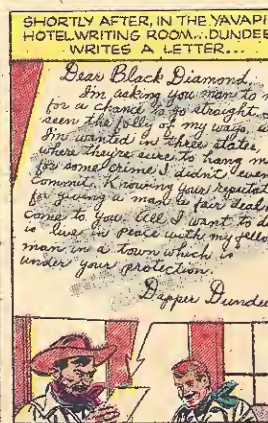 SHORTLY AFTER, IN THE YAVAPI
HOTEL WRITING ROOM...DUNDEE
WRITES A LETTER...
Dear Black Diamond,
I'm asking you man to m
for a chance to go straight. I
seen the folly of my ways, a
I'm wanted in three states,
where they're sure to hang m
for some crime I didn't even
commit. Knowing your reputat
for giving a man a fair deal,
come to you. All I want to d
is live in peace with my fello
man in a town which is
under your protection.
Dapper Dundee